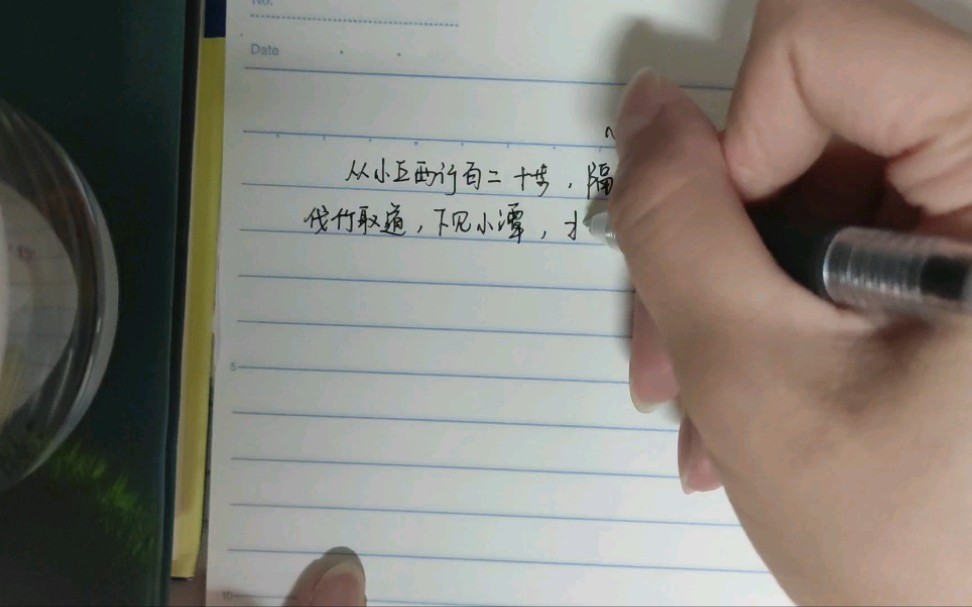 No.
Date
从小丘西行百二十步，隔
伐竹取道，下见小潭，
5
10